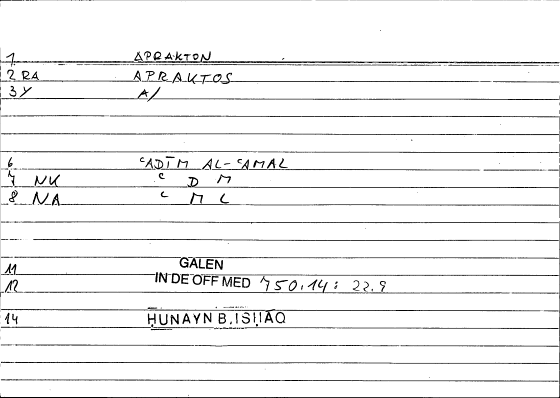 1 APRAKTON
2 RA APRAKTOS
3 Y A/
6 ᶜADĪM AL-ᶜAMAL
7 NK ᶜ D M
8 NA ᶜ M L
11 GALEN
12 IN DE OFF MED 750.14: 22.9
14 ḤUNAYN B. ISḤĀQ